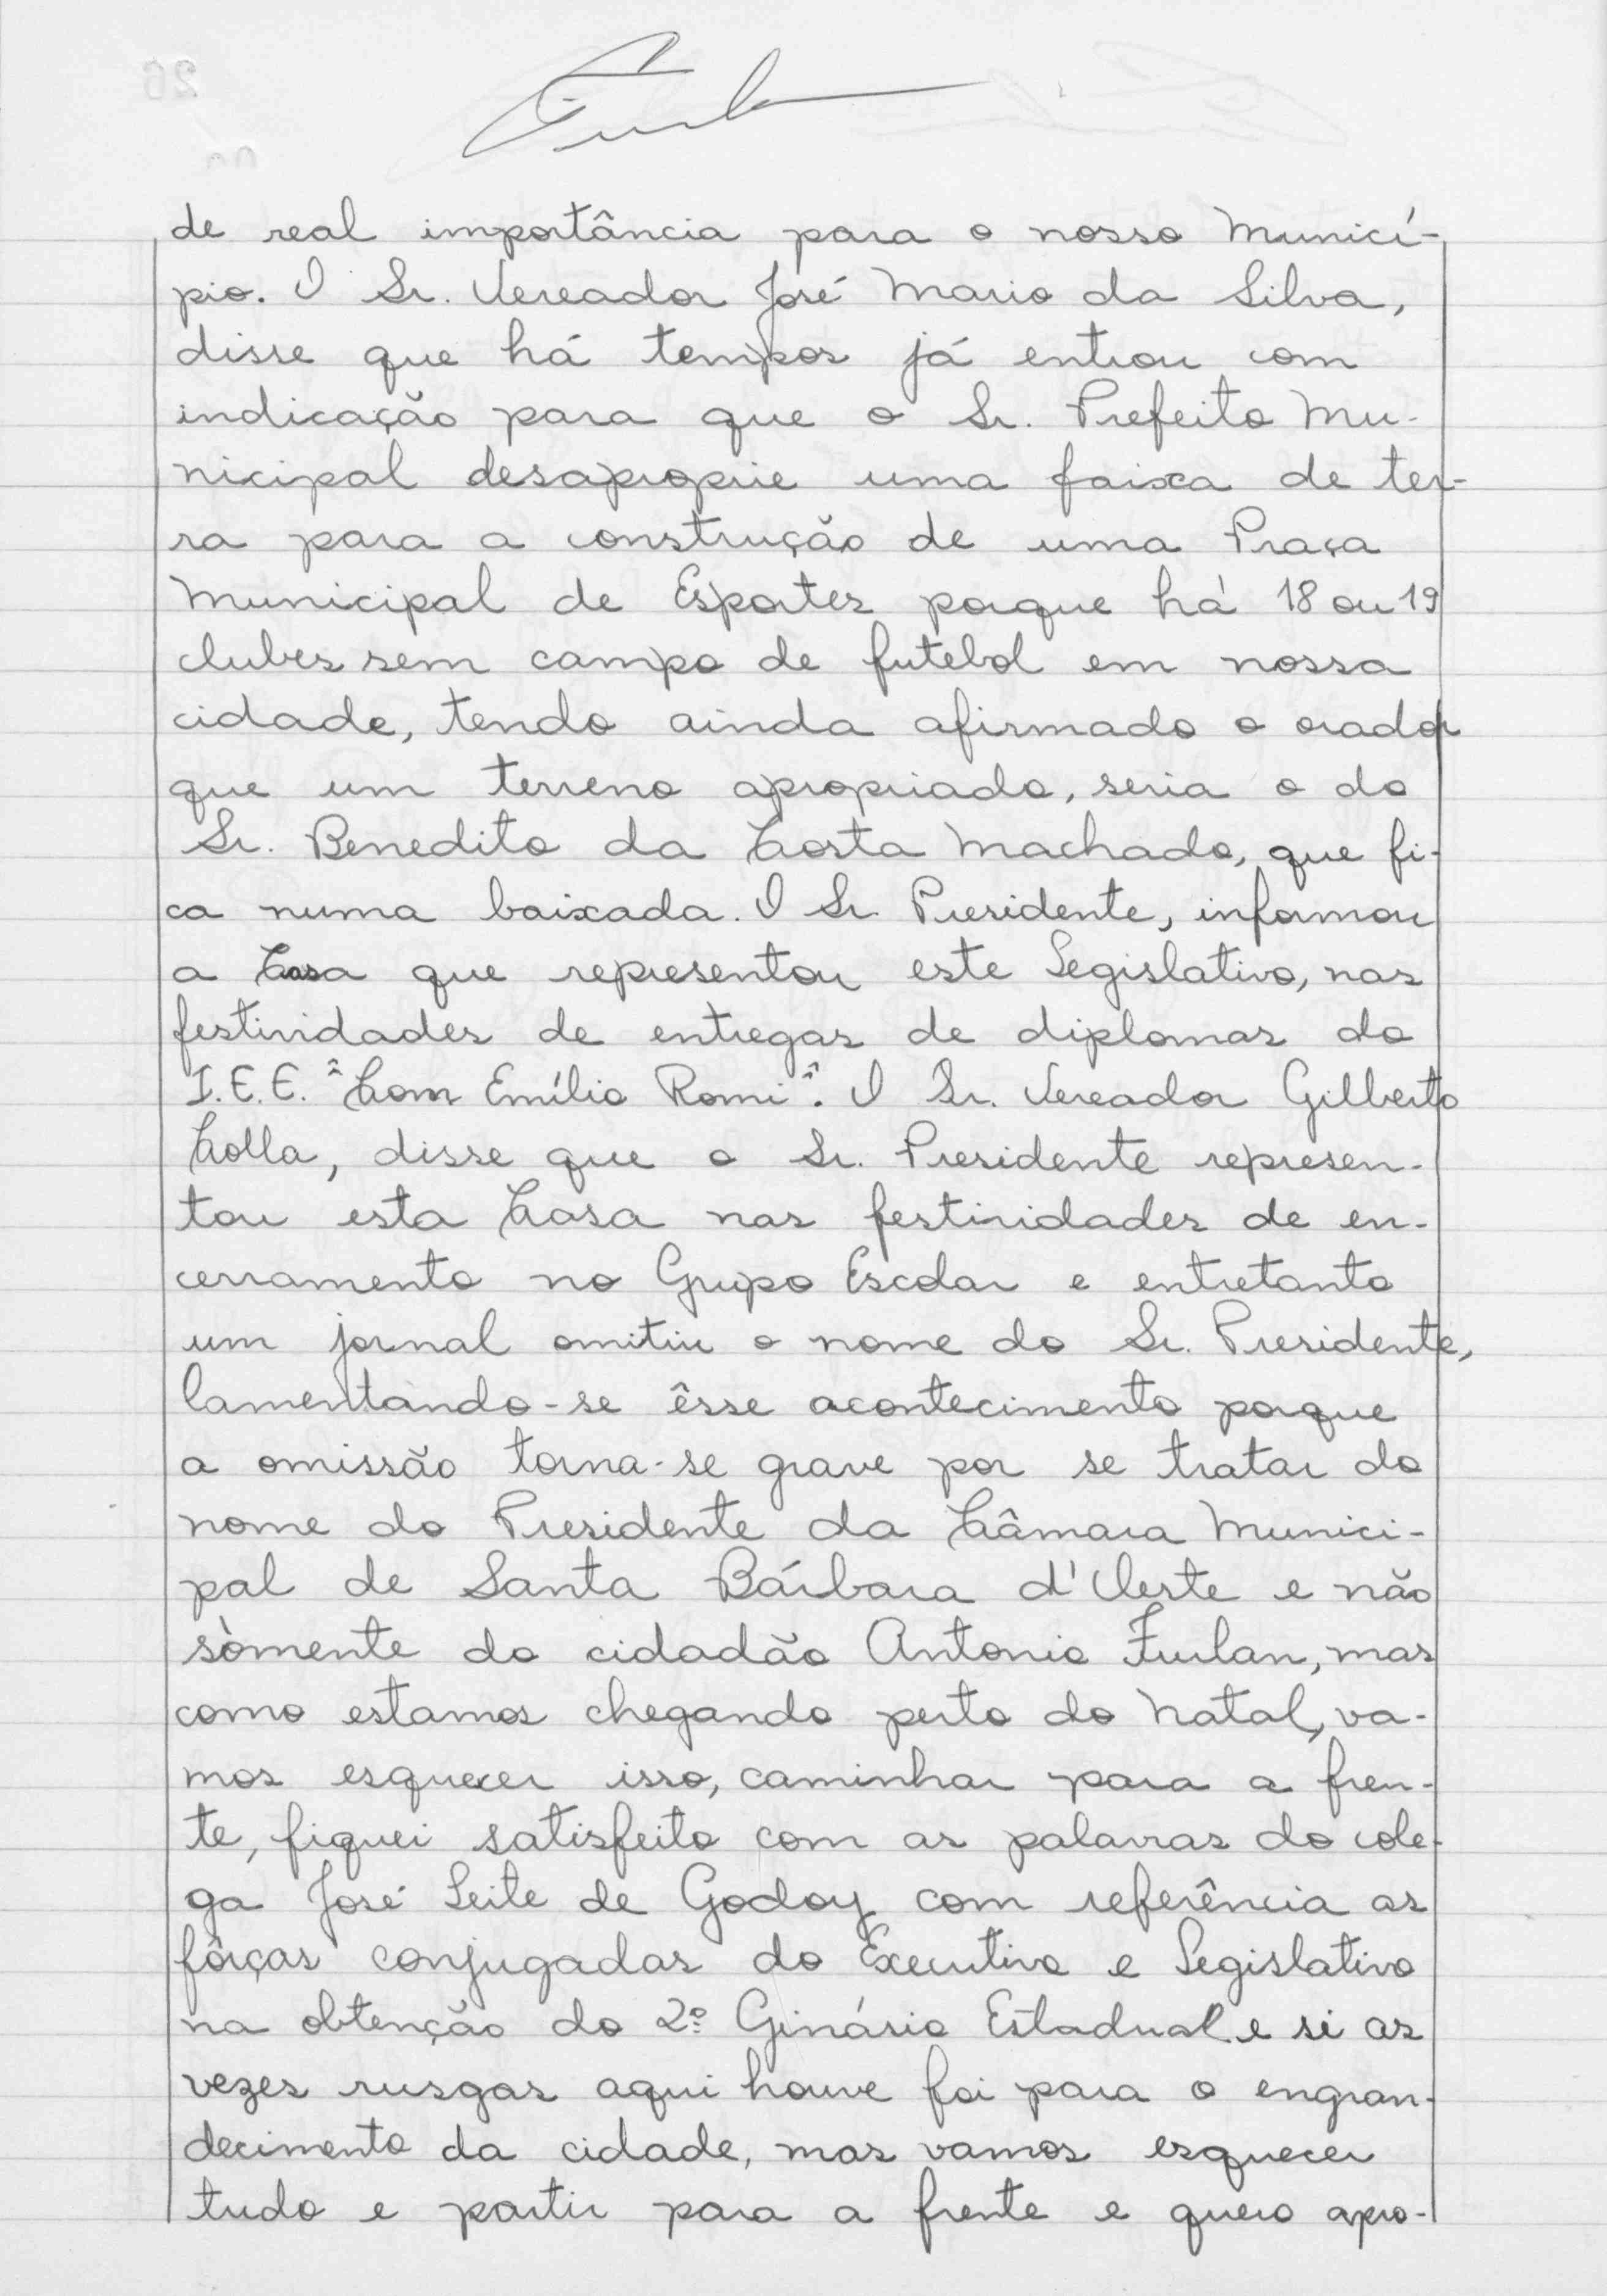 de real importância para o nosso Municí-
pio. O Sr. Vereador José Mario da Silva,
disse que há tempos já entrou com
indicação para que o Sr. Prefeito Mu-
nicipal desaproprie uma faixa de ter-
ra para a construção de uma Praça
Municipal de Esportes porque há 18 ou 19
clubes sem campo de futebol em nossa
cidade, tendo ainda afirmado o orador
que um terreno apropriado, seria o do
Sr. Benedito da Costa Machado, que fi-
ca numa baixada. O Sr. Presidente, informou
a Casa que representou este Legislativo, nas
festividades de entregas de diplomas do
I.E.E. "Com Emílio Romi". O Sr. Vereador Gilberto
Colla, disse que o Sr. Presidente represen-
tou esta Casa nas festividades de en-
cerramento no Grupo Escolar e entretanto
um jornal omitiu o nome do Sr. Presidente,
lamentando-se êsse acontecimento porque
a omissão torna-se grave por se tratar do
nome do Presidente da Câmara Munici-
pal de Santa Bárbara d'Oeste e não
sòmente do cidadão Antonio Furlan, mas
como estamos chegando perto do Natal, va-
mos esquecer isso, caminhar para a fren-
te, fiquei satisfeito com as palavras do cole-
ga José Leite de Godoy com referência as
fôrças conjugadas do Executivo e Legislativo
na obtenção do 2º Ginásio Estadual e si as
vezes rusgas aqui houve foi para o engran-
decimento da cidade, mas vamos esquecer
tudo e partir para a frente e quero apro-